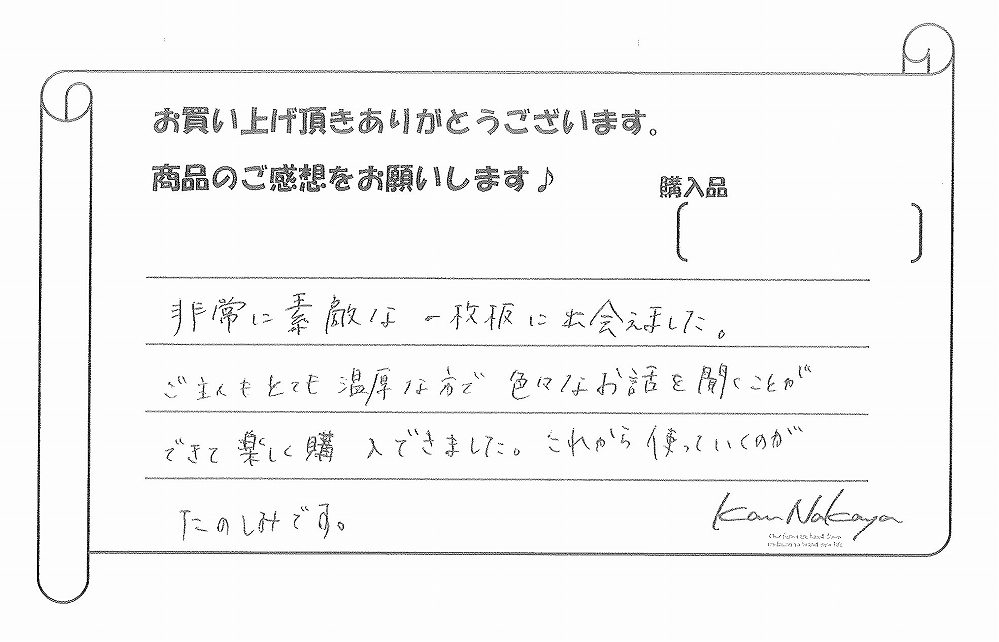 お買い上げ頂きありがとうございます。
商品のご感想をお願いします♪
購入品
非常に素敵な一枚板に出会えました。
ご主人もとても温厚な方で 色々なお話を聞くことが
できて楽しく購入できました。これから使っていくのが
たのしみです。
Kan Nakaya